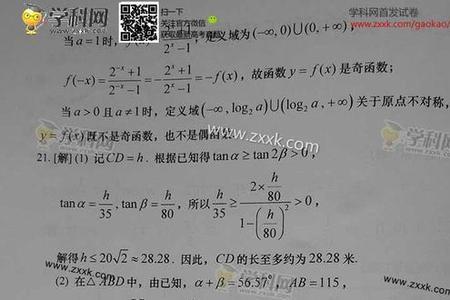 学科网
扫一扫
关注官方微信
获取最热高考资料
学科网首发试卷
www.zxxk.com/gaokao/
当a=1时，f(x)= 2ˣ-1，定义域为(-∞,0)∪(0,+∞)，
f(-x)=(2⁻ˣ+1)/(2⁻ˣ-1)=-(2ˣ+1)/(2ˣ-1)=-f(x)，故函数y=f(x)是奇函数；
当a>0且a≠1时，定义域(-∞,log₂a)∪(log₂a,+∞)关于原点不对称，
y=f(x)既不是奇函数，也不是偶函数
www.zxxk.com
学科网
21.[解](1) 记CD=h．根据已知得tanα≥tan2β>0，
tanα=h/35,tanβ=h/80，所以h/35≥(2×h/80)/(1-(h/80)²)>0，
解得h≤20√2≈28.28．因此，CD的长至多约为28.28米．
(2) 在△ABD中，由已知，α+β=56.57°，AB=115，
www.zxxk.com
学科网